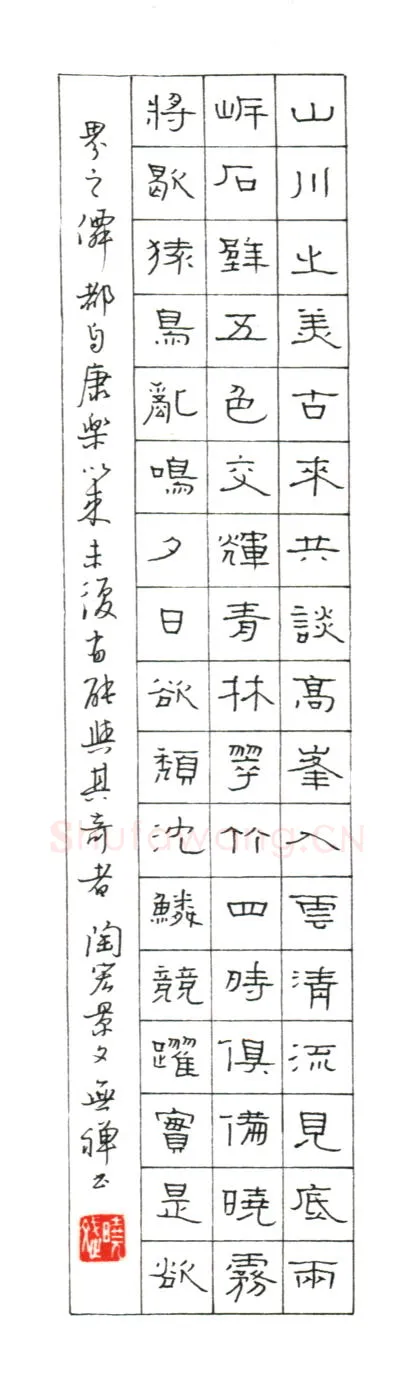 山川之美古來共談高峯入雲清流見底兩
岸石壁五色交輝青林翠竹四時俱備曉霧
將歇猿鳥亂鳴夕日欲頹沈鱗競躍實是欲
界之僊都自康樂以来未復有能與其奇者 陶宏景文無禅书
Shufawang.CN